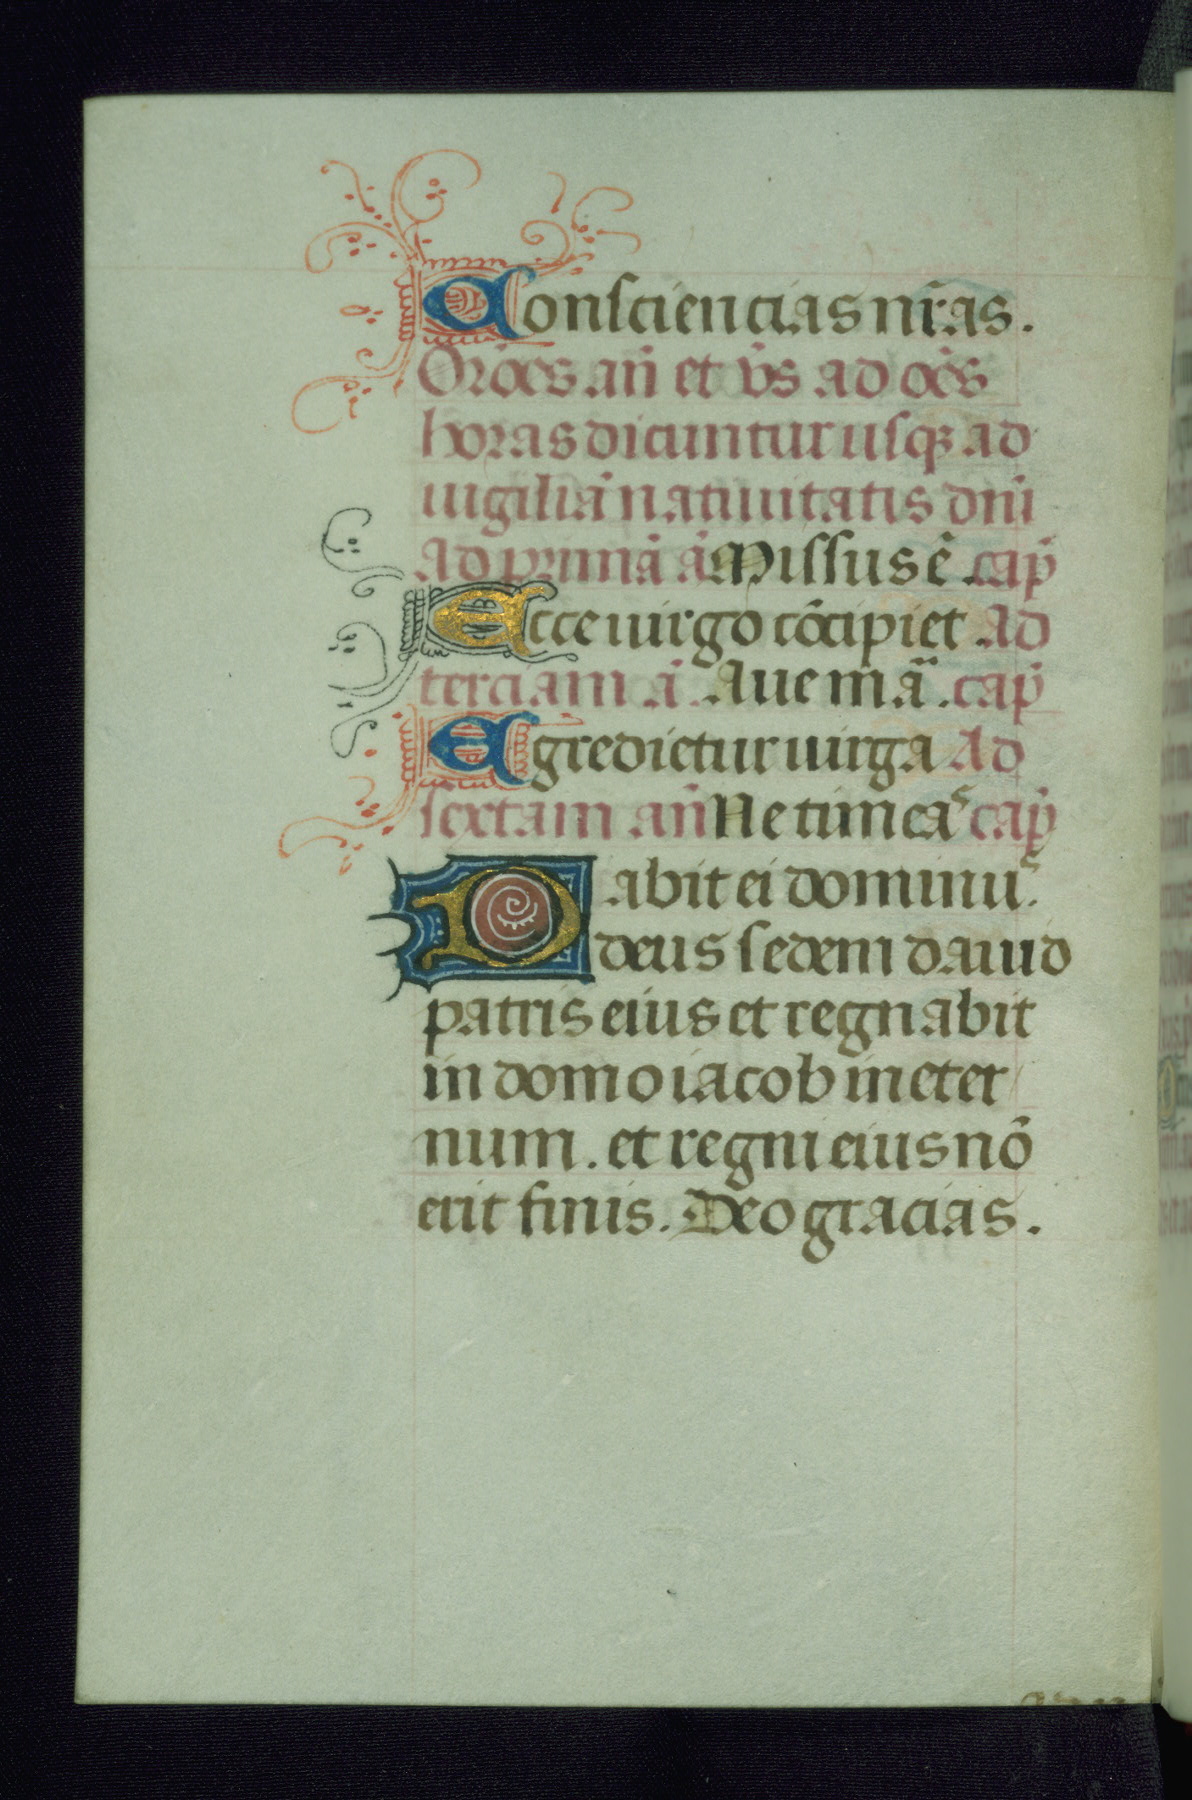 Consciencias nr̄as.
Or̄oēs an̄ et v̄s ad oēs
horas dicuntur usqꝫ ad
uigiliā natiuitatis dn̄i
Ad primā ā Missus ē. cap̄
Ecce uirgo cōcipiet. Ad
terciam ā. Aue mā. cap̄
Egredietur uirga Ad
sextam an̄ Ne timeas cap̄
Dabit ei dominus.
deus sedem dauid
patris eius et regnabit
in domo iacob in eter
num. et regni eius nō
erit finis. Deo gracias.